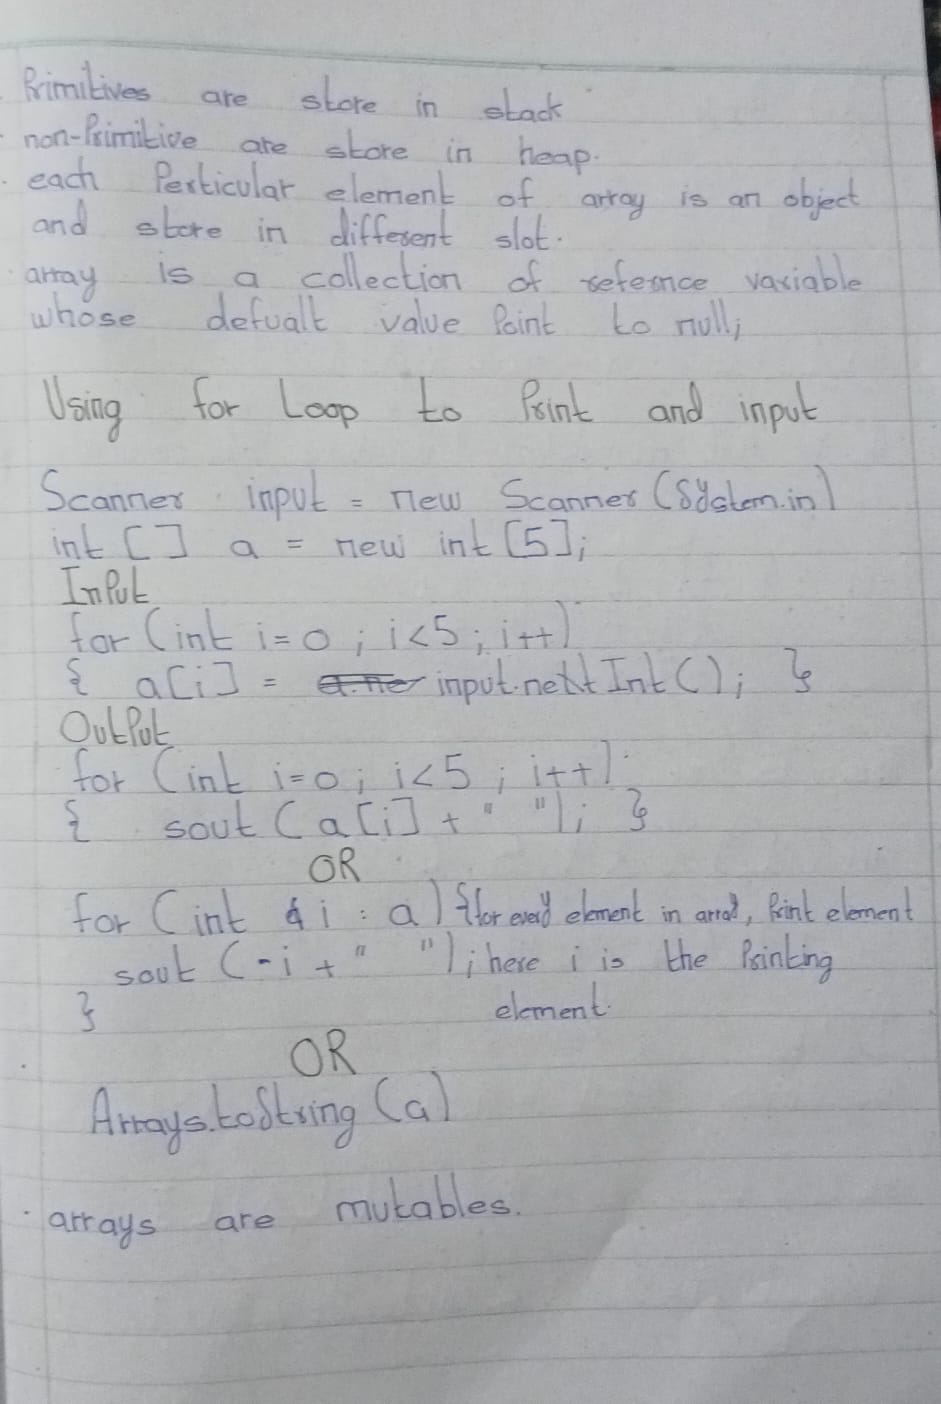 Primitives are store in stack
non-Primitive are store in heap.
each Perticular element of array is an object
and store in different slot.
array is a collection of refernce variable
whose defualt value Point to null;
Using for Loop to Print and input
Scanner input = new Scanner (System.in)
int [] a = new int [5];
InPut
for (int i=0 ; i<5 ; i++)
{ a[i] = input.next Int (); }
OutPut
for (int i=0; i<5 ; i++)
{ sout (a[i] + " "); }
OR
for (int i : a) { for every element in array, Print element
sout (-i + " "); here i is the Printing
} element.
OR
Arrays.toString (a)
arrays are mutables.